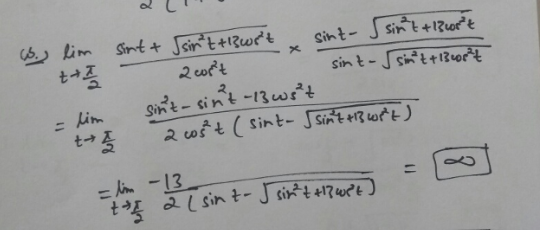 2 (1
(3.) lim t→π/2 (sint + √(sin²t+13cos²t)) / (2cos²t) × (sint - √(sin²t+13cos²t)) / (sint - √(sin²t+13cos²t))
= lim t→π/2 (sin²t - sin²t - 13cos²t) / (2cos²t (sint - √(sin²t+13cos²t)))
= lim t→π/2 -13 / (2(sin t - √(sin²t+13cos²t))) = ∞